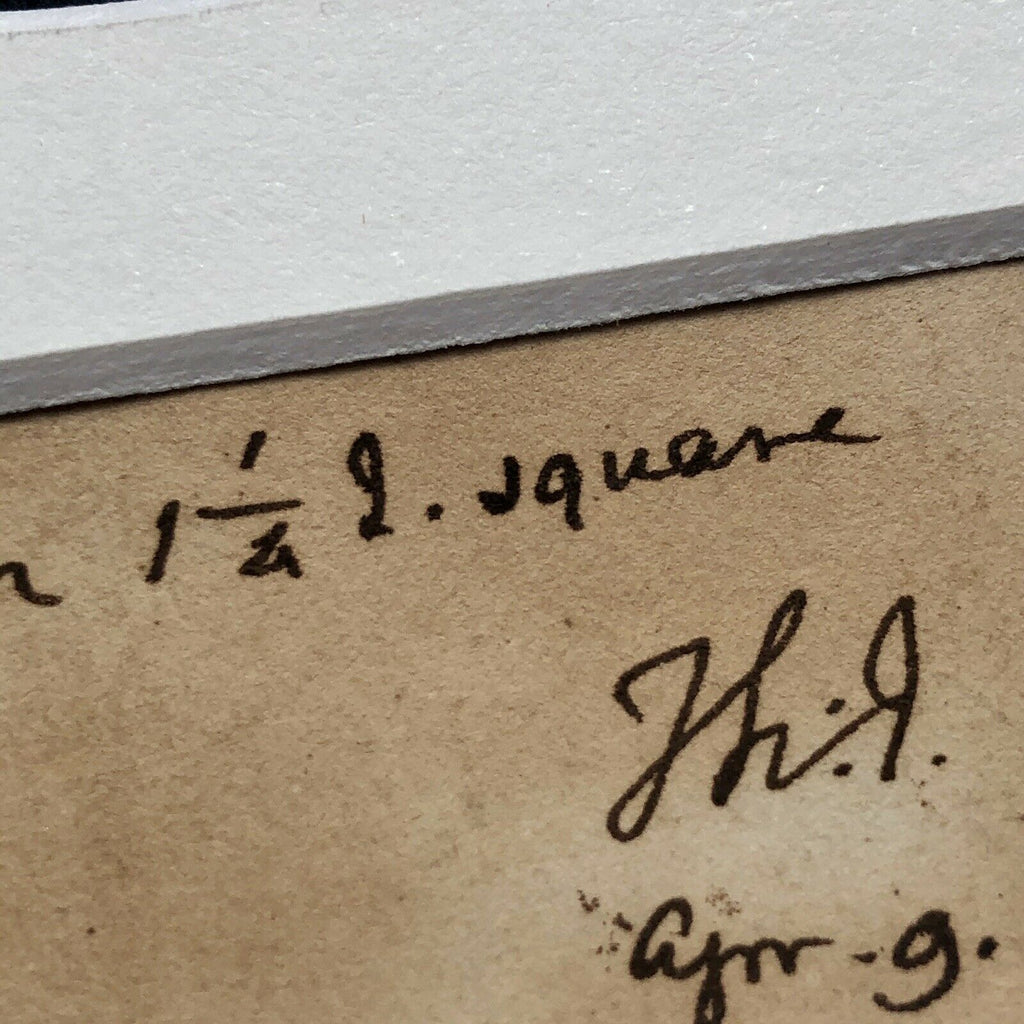 1 1/4 I. square
Th: J.
Apr - 9.